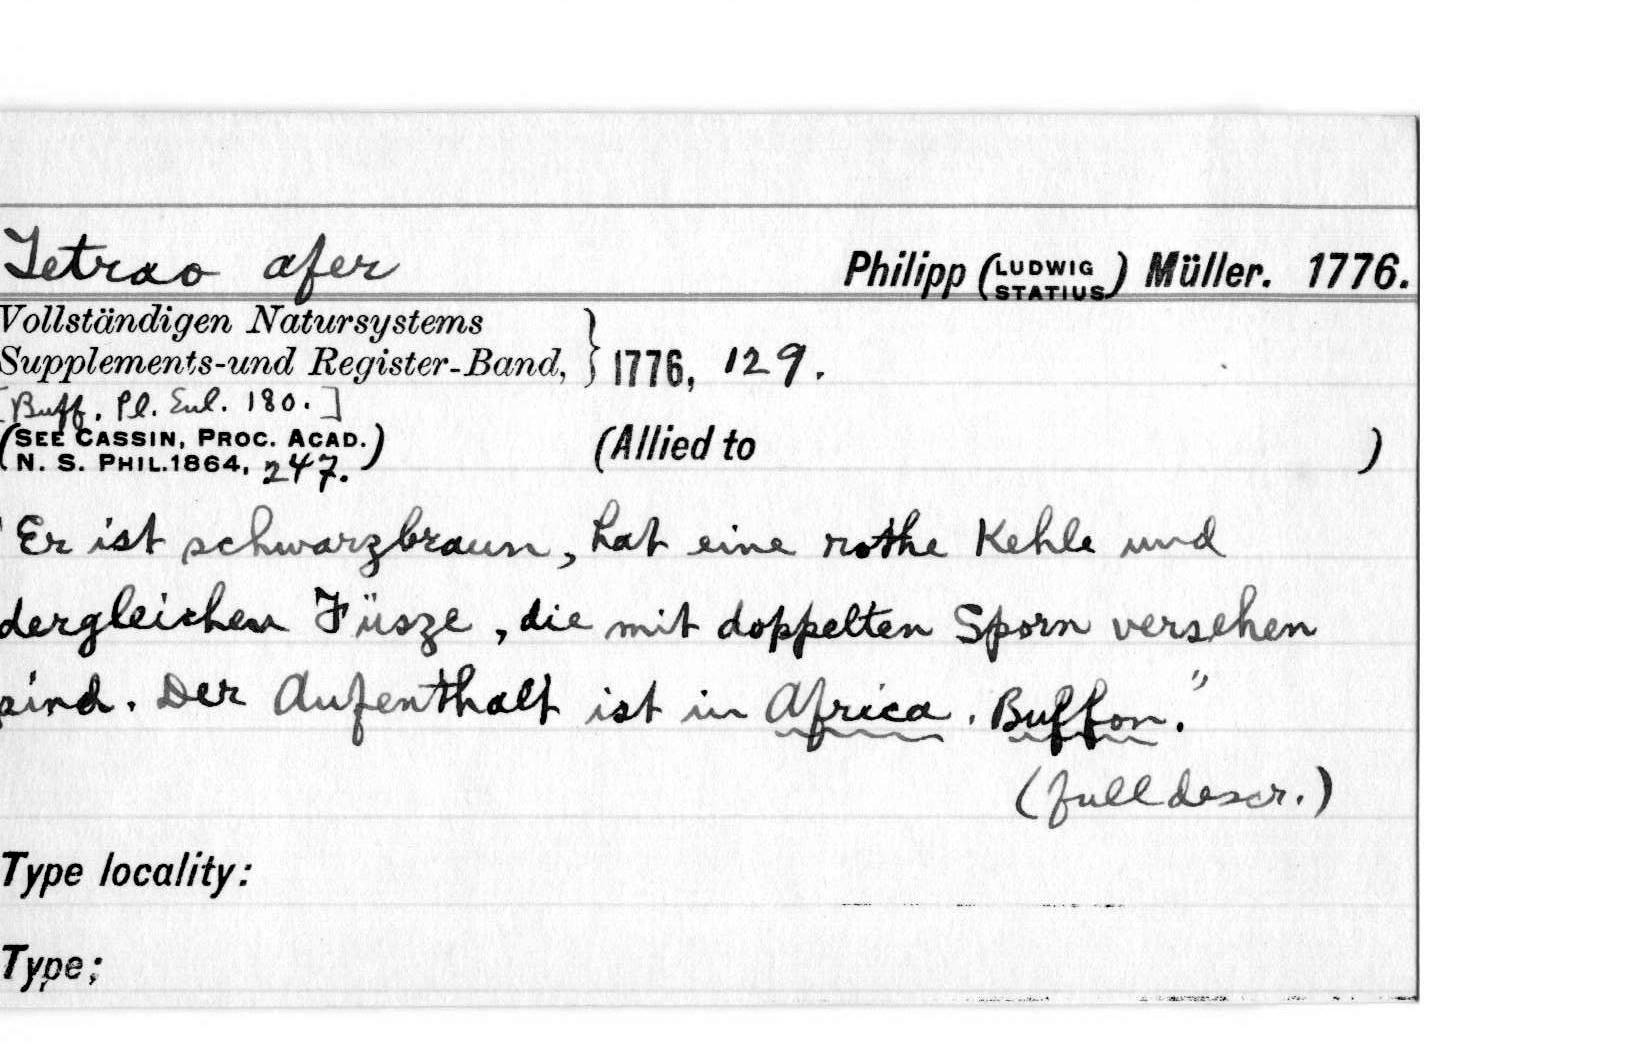 Tetrao afer Philipp (LUDWIG STATIUS) Müller. 1776.
Vollständigen Natursystems
Supplements-und Register-Band, } 1776, 129.
[Buff. Pl. Enl. 180.]
(SEE CASSIN, PROC. ACAD. (Allied to )
N. S. PHIL. 1864, 247.)
"Er ist schwarzbraun, hat eine rothe Kehle und
dergleichen Füsze, die mit doppelten Sporn versehen
sind. Der Aufenthalt ist in Africa. Buffon."
(full descr.)
Type locality:
Type;